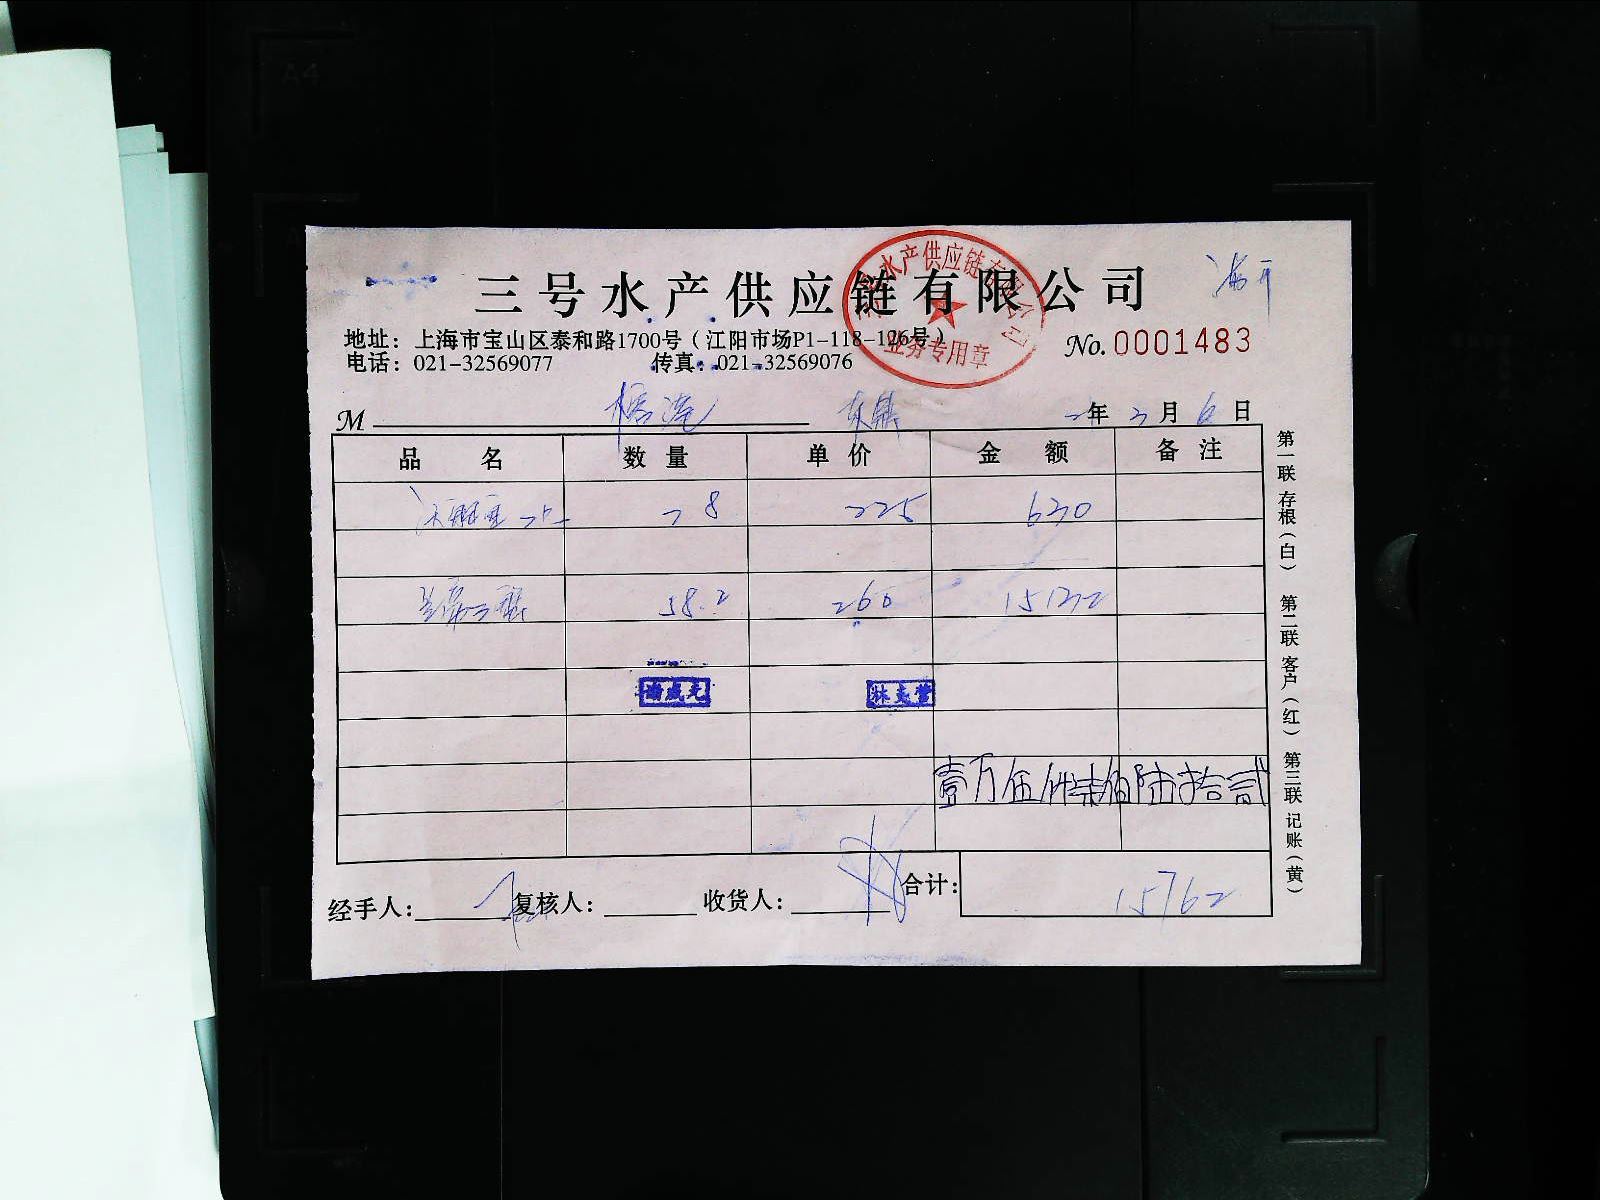 A4
三号水产供应链有限公司
三号水产供应链有限公司
业务专用章
地址：上海市宝山区泰和路1700号（江阳市场P1-118-126号）
电话：021-32569077 传真：021-32569076
No. 0001483
M
年 3月 6日
品名 数量 单价 金额 备注
28 225 630
58.2 260 15132
壹万伍仟柒佰陆拾贰
经手人： 复核人： 收货人： 合计： 15762
第一联 存根（白） 第二联 客户（红） 第三联 记账（黄）